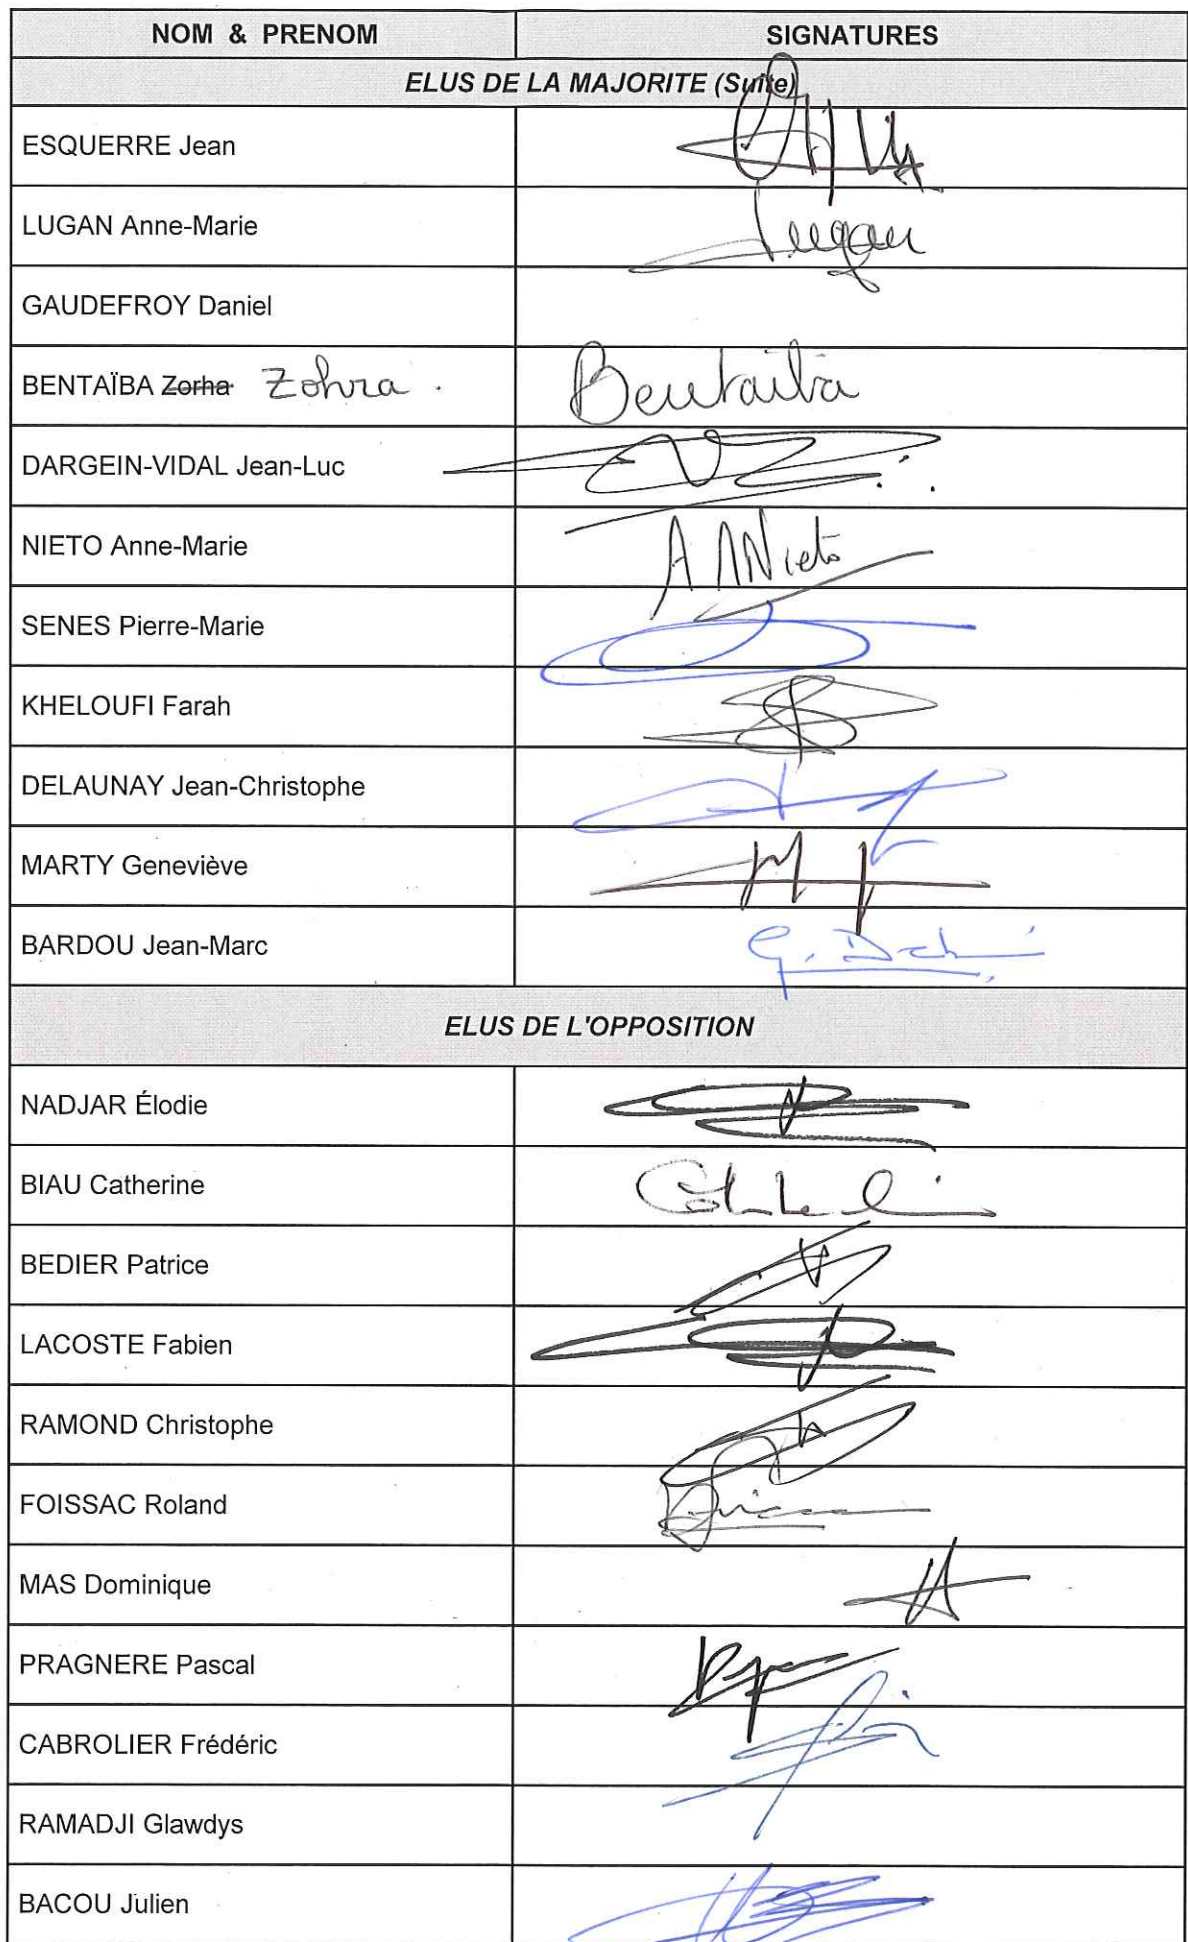 NOM & PRENOM SIGNATURES
ELUS DE LA MAJORITE (Suite)
ESQUERRE Jean
LUGAN Anne-Marie Lugan
GAUDEFROY Daniel
BENTAÏBA Zorha Zohra . Bentaïba
DARGEIN-VIDAL Jean-Luc
NIETO Anne-Marie AMNieto
SENES Pierre-Marie
KHELOUFI Farah
DELAUNAY Jean-Christophe
MARTY Geneviève
BARDOU Jean-Marc
ELUS DE L'OPPOSITION
NADJAR Élodie
BIAU Catherine
BEDIER Patrice
LACOSTE Fabien
RAMOND Christophe
FOISSAC Roland
MAS Dominique
PRAGNERE Pascal
CABROLIER Frédéric
RAMADJI Glawdys
BACOU Julien